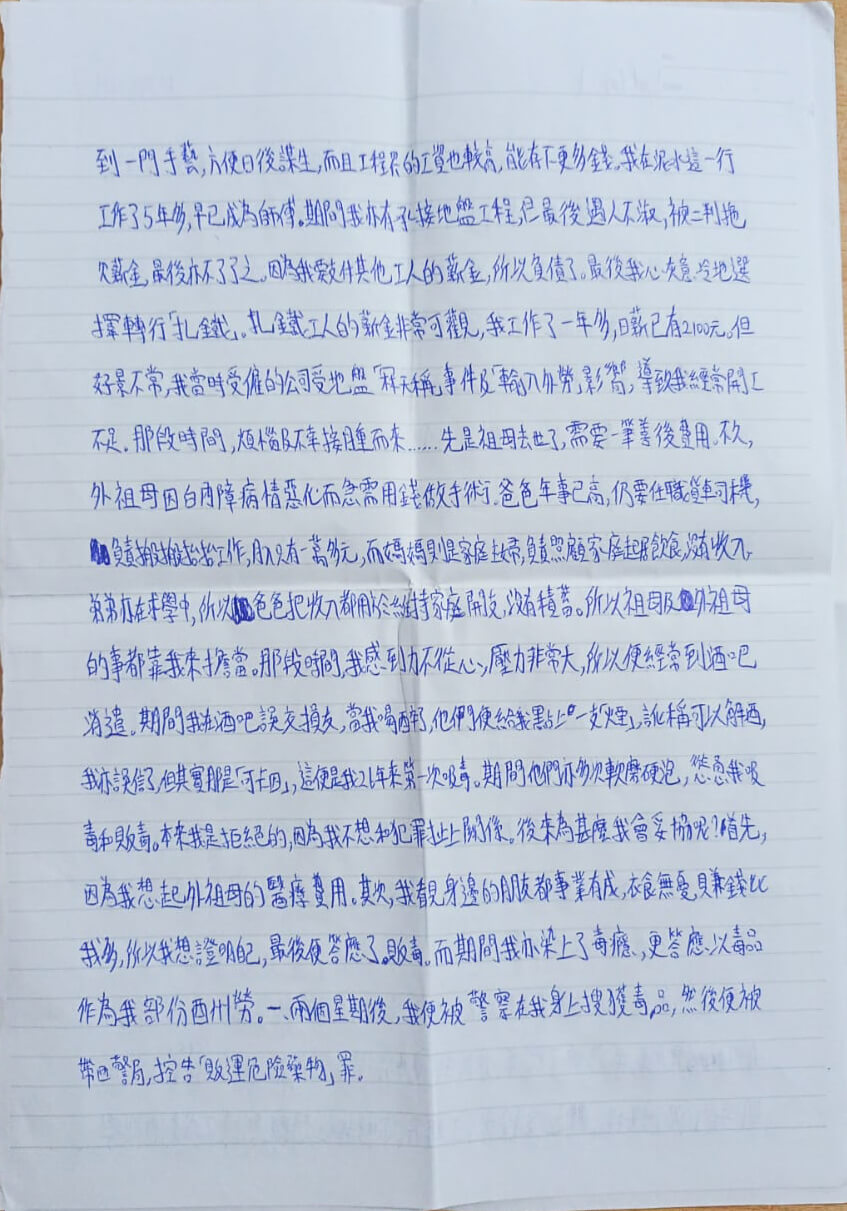 到一門手藝,方便日後謀生,而且工程界的工資也較高,能存下更多錢。我在泥水這一行
工作了5年多,早已成為師傅。期間我亦有承接地盤工程,但最後遇人不淑,被二判拖
欠薪金,最後亦不了了之。因為我要支付其他工人的薪金,所以負債了。最後我心灰意冷地選
擇轉行「扎鐵」。扎鐵工人的薪金非常可觀,我工作了一年多,日薪已有2100元。但
好景不常,我當時受僱的公司受地盤「冧天秤」事件及「輸入外勞」影響,導致我經常開工
不足。那段時間,煩惱及不幸接踵而來......先是祖母去世了,需要一筆善後費用。不久,
外祖母因白內障病情惡化而急需用錢做手術。爸爸年事已高,仍要任職貨車司機,
負責搬搬抬抬工作,月入只有一萬多元,而媽媽則是家庭主婦,負責照顧家庭起居飲食,沒有收入。
弟弟亦在求學中,所以爸爸把收入都用於維持家庭開支,沒有積蓄。所以祖母及外祖母
的事都靠我來擔當。那段時間,我感到力不從心,壓力非常大,所以便經常到酒吧
消遣。期間我在酒吧誤交損友,當我喝醉了,他們便給我點上「一支煙」,訛稱可以解酒,
我亦誤信了,但其實那是「可卡因」,這便是我26年來第一次吸毒。期間他們亦多次軟磨硬泡,慫恿我吸
毒和販毒。本來我是拒絕的,因為我不想和犯罪扯上關係。後來為甚麼我會妥協呢?首先,
因為我想起外祖母的醫療費用。其次,我看見身邊的朋友都事業有成,衣食無憂,賺錢比
我多,所以我想證明自己,最後便答應了販毒。而期間我亦染上了毒癮,更答應以毒品
作為我部份酬勞。一、兩個星期後,我便被警察在我身上搜獲毒品,然後便被
帶回警局,控告「販運危險藥物」罪。